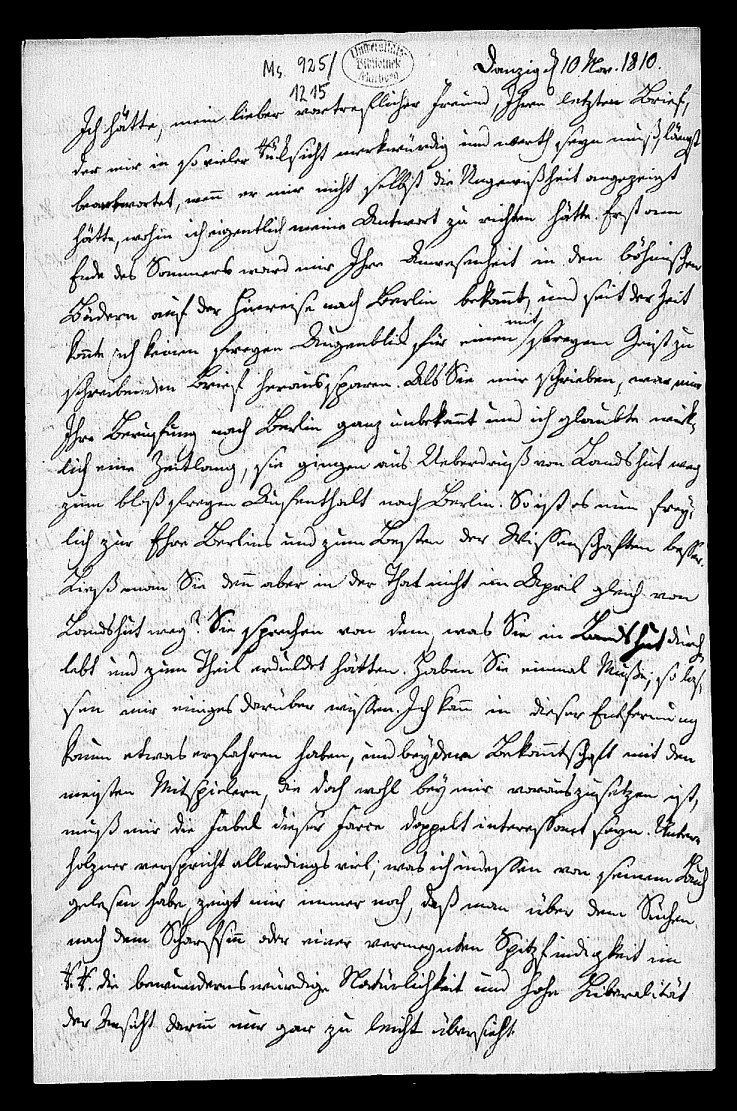 Ms. 925/
1215
Universitäts-
Bibliothek
Marburg
Danzig d 10 Nov. 1810.
Ich hätte, mein lieber vortreflicher Freund, Ihren letzten Brief,
der mir in so vieler Rüksicht merkwürdig und werth seyn muß, längst
beantwortet, wenn er mir nicht selbst die Ungewißheit angezeigt
hätte, wohin ich eigentlich meine Antwort zu richten hätte. Erst am
Ende des Sommers ward mir Ihre Anwesenheit in den böhmischen
Bädern auf der Hinreise nach Berlin bekannt, und seit der Zeit
konnte ich keinen freyen Augenblik für einen mit freyem Geist zu
schreibenden Brief heraussparen. Als Sie mir schrieben, war mir
Ihre Berufung nach Berlin ganz unbekannt und ich glaubte wirk-
lich eine Zeitlang, sie gingen aus Ueberdruß von Landshut weg
zum bloß freyen Aufenthalt nach Berlin. So ist es nun frey-
lich zur Ehre Berlins und zum Besten der Wissenschaften besser.
Ließ man Sie denn aber in der That nicht im April gleich von
Landshut weg? Sie sprachen von dem, was Sie in Landshut durch-
lebt und zum Theil erduldet hätten. Haben Sie einmal Muße, so las-
sen mir einiges darüber wissen. Ich kann in dieser Entfernung
kaum etwas erfahren haben, und bey der Bekanntschaft mit den
meisten Mitspielern, die doch wohl bey mir vorauszusetzen ist,
muß mir die Fabel dieser Farce doppelt interessant seyn. Unter-
holzner verspricht allerdings viel; was ich indessen von seinem Buch
gelesen habe, zeigt mir immer noch, daß man über dem Suchen
nach dem Scharfsinn oder einer vermeynten Spitzfindigkeit im
R. R. die bewundernswürdige Natürlichkeit und hohe Liberalität
der Ansicht darin nur gar zu leicht übersieht.